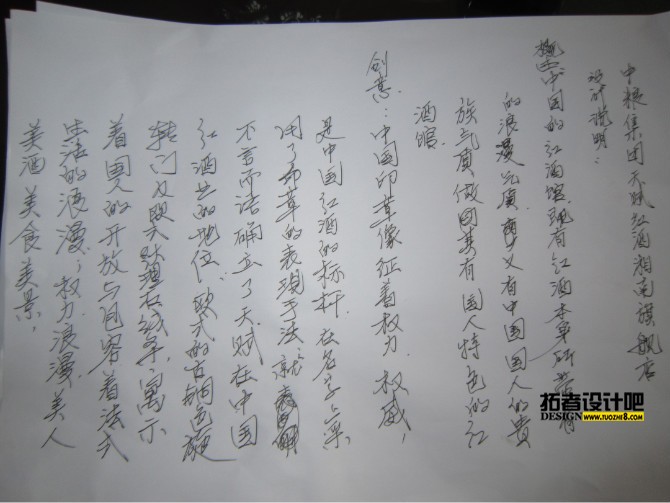 中粮集团天赋红酒湘南旗舰店
设计说明：
中国的红酒馆既有红酒本身所带有
的浪漫气质又有中国国人的贵
族气质做国类有国人特色的红
酒馆.
创意：中国印章像征着权力.权威，
是中国红酒的标杆.在名字上采
用了印章的表现手法就
不言而语确立了天赋在中国
红酒业的地位.欧式的古铜色旋
转门又具线条，寓示
着国人的开放与包容着法式
生活的浪漫；权力浪漫美人
美酒美食美景，
拓者设计吧
DESIGN www.tuozhe8.com